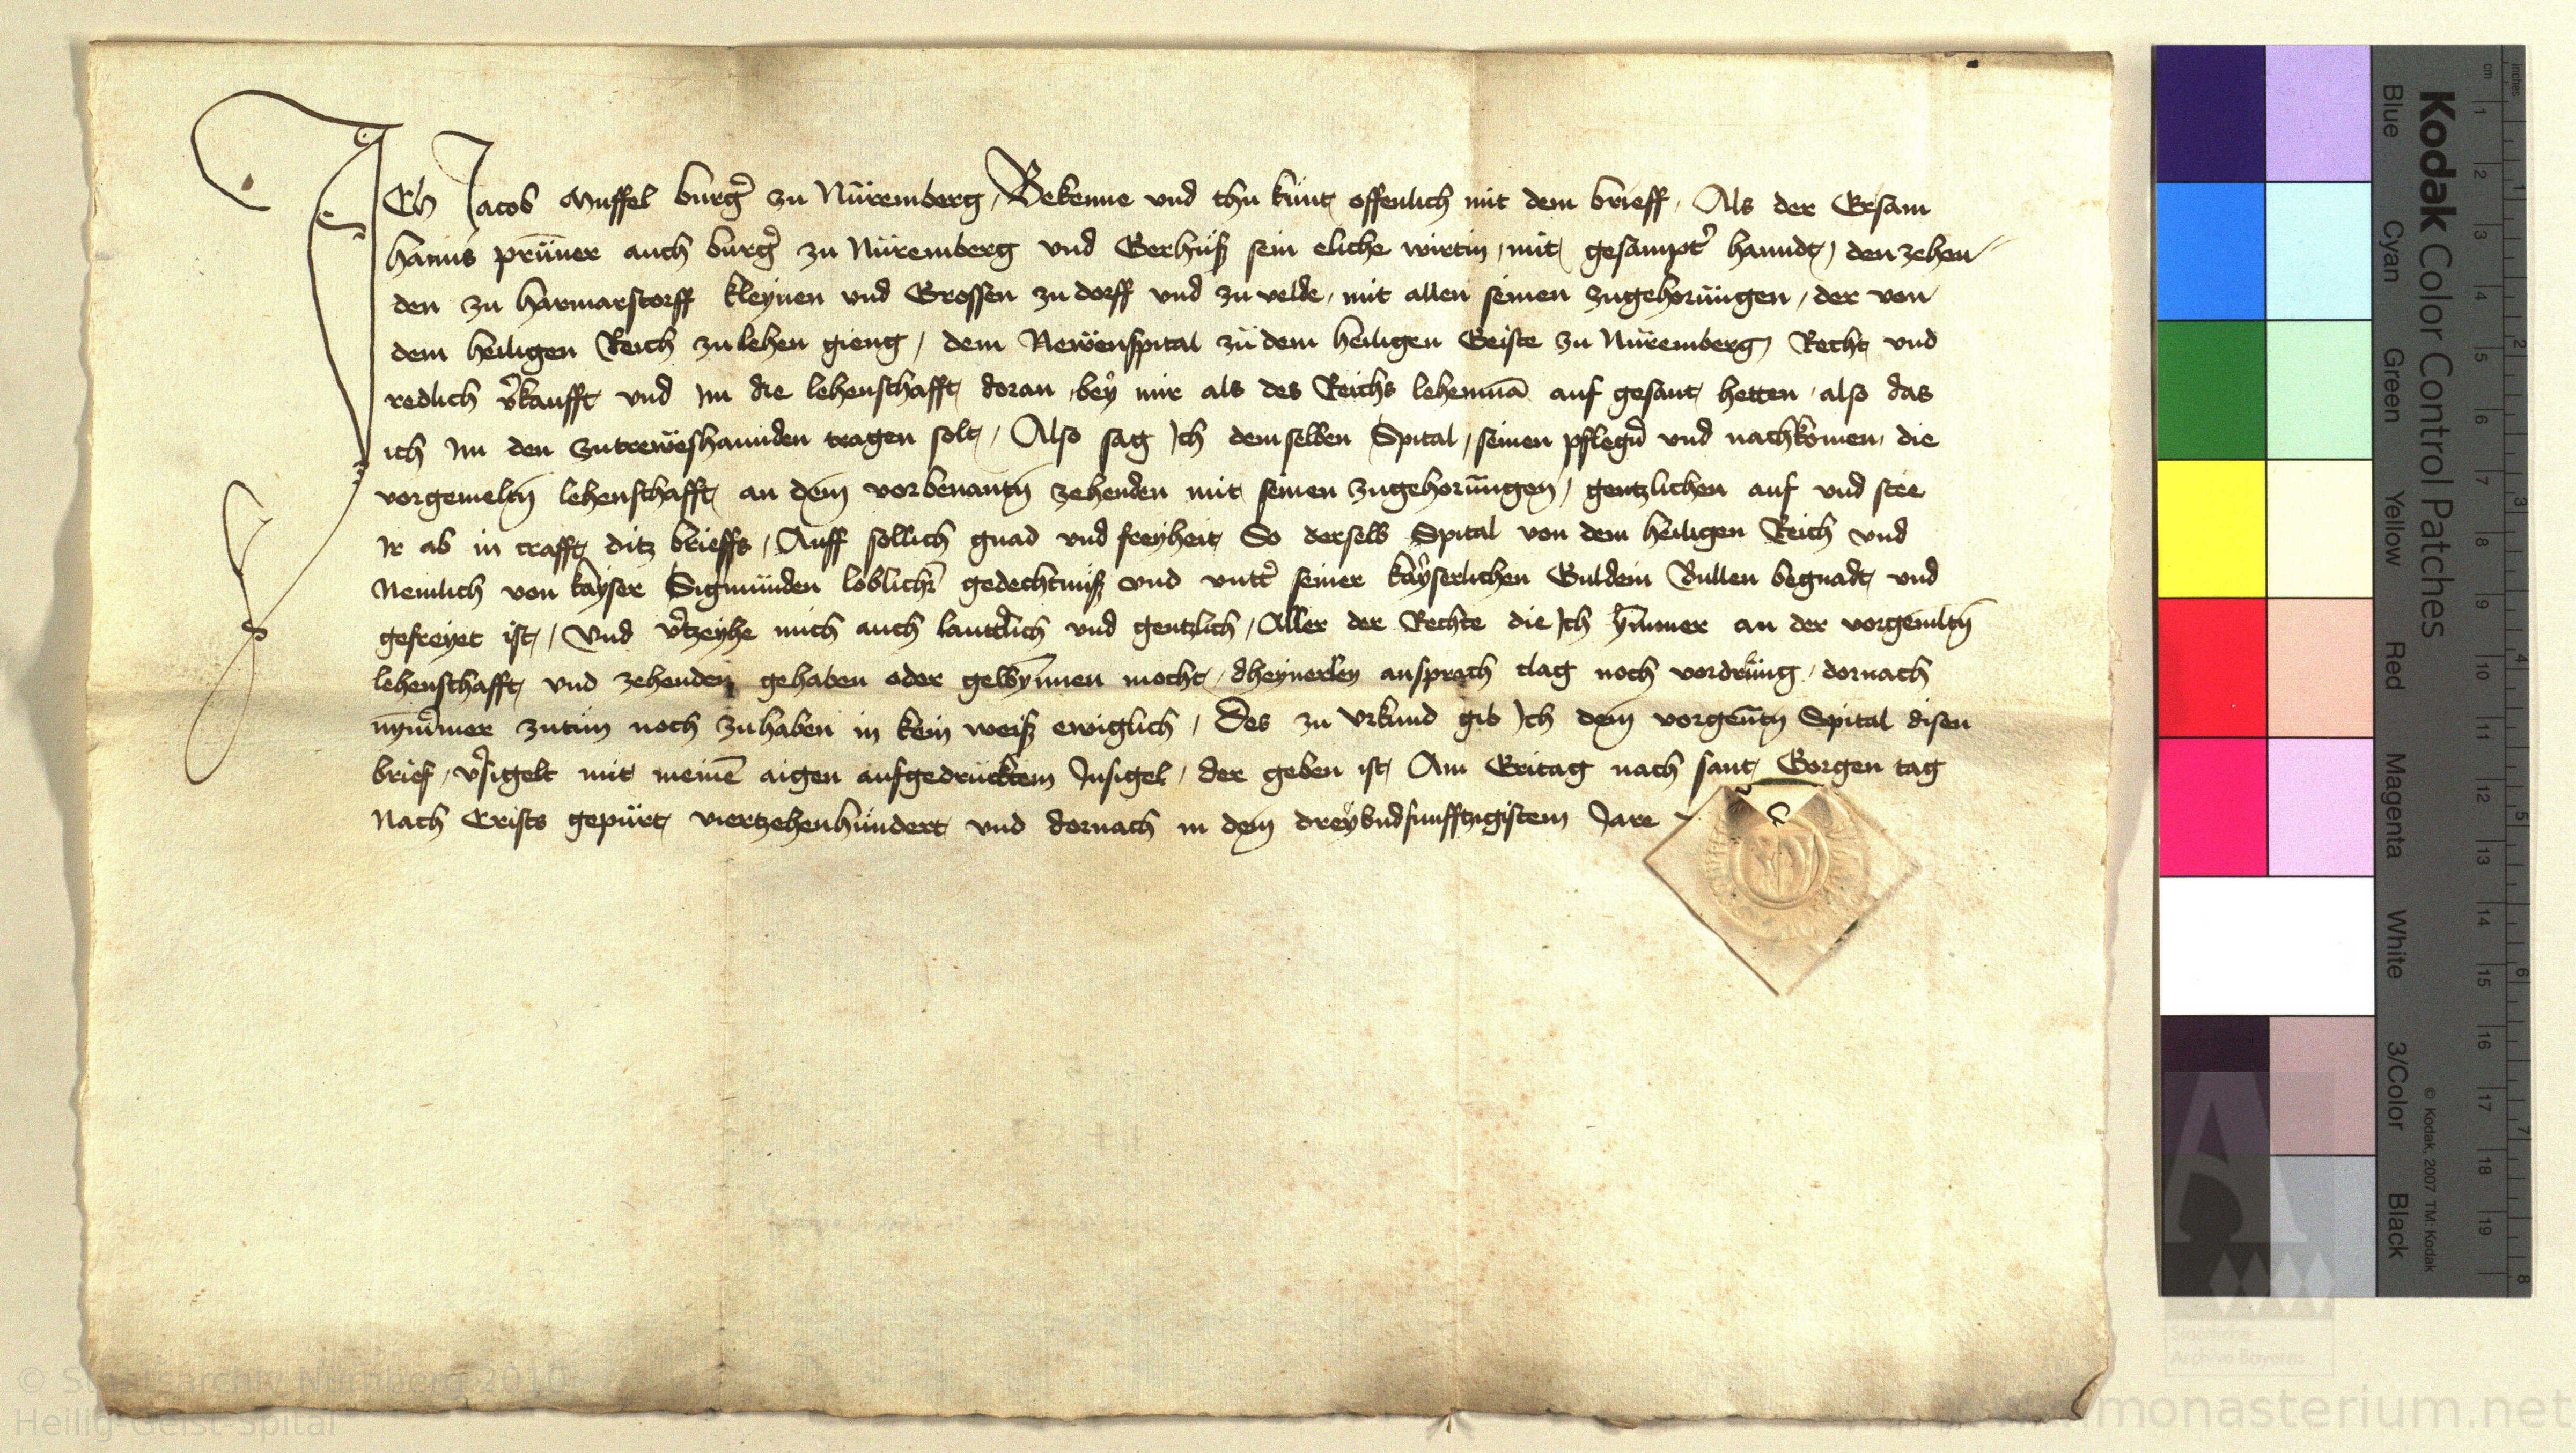 ICh Jacob Muffel burg̉ zu Nüremberg / Bekenne vnd thu künt offenlich mit dem brieff / Als der Ersam
hanns prünner auch burg̉ zu Nüremberg vnd Gerhuß sein eliche wirtin / mit gesampt̉ hanndt / den zehen
den zu harmarstorff kleynen vnd Grossen zu dorff vnd zu velde / mit allen seinen zugehorungen / der von
dem heiligen Reich zu lehen gieng / dem Newenspital zu dem heiligen Geiste zu Nüremberg / Recht vnd
redlich v̉kaufft vnd Im die lehenschafft doran bey mir als des Reichs lehenmā auf gesant hetten / also das
ich Im den zutreẅeshannden tragen solt / Also sag Ich demselben Spital / seinen pfleg̉n vnd nachkomen / die
vorgemeltn̄ lehenschafft an dem vorbenantn̄ zehenden mit seinen zugehorungen / gentzlichen auf vnd stee
Ir ab in crafft ditz brieffs / Auff sollich gnad vnd freyheit So derselb Spital von dem heiligen Reich vnd
Nemlich von kayser Sigmünden loblich̉ gedechtnüß vnd vntt̉ seiner kayserlichen Guldein Bullen begnadt vnd
gefreyet ist / Vnd v̉tzeyhe mich auch lautt̉lich vnd gentzlich / Aller der Rechte die Ich ẏmmer an der vorgemltn̄
lehenschafft vnd zehenden gehaben oder gewynnen mocht / dheynerley ansprach clag noch vordrüng / dornach
nymmer zutün noch zuhaben in kein weiß ewiglich / Des zu Vrkund gib Ich dem vorgen̄tn̄ Spital disen
brief / v̉sigelt mit meinē aigen aufgedrücktem Insigel / der geben ist Am Eritag nach sant Gorgen tag
Nach Crists gepürt viertzehenhündert vnd dornach in dem dreyvndfunfftzigistem Jare
Kodak Color Control Patches
Blue Cyan Green Yellow Red Magenta White 3/Color Black
© Kodak, 2007 TM: Kodak
cm 1 2 3 4 5 6 7 8 9 10 11 12 13 14 15 16 17 18 19
inches 1 2 3 4 5 6 7 8
© Staatsarchiv Nürnberg 2010
Heilig-Geist-Spital
monasterium.net
Staatliche
Archive Bayerns